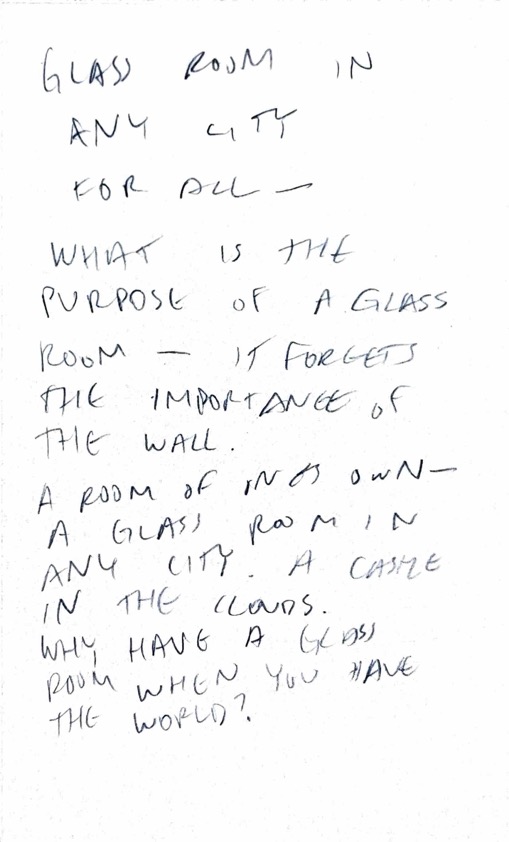 GLASS ROOM IN
ANY CITY
FOR ALL —
WHAT IS THE
PURPOSE OF A GLASS
ROOM — IT FORGETS
THE IMPORTANCE OF
THE WALL.
A ROOM OF OWN —
A GLASS ROOM IN
ANY CITY. A CASTLE
IN THE CLOUDS.
WHY HAVE A GLASS
ROOM WHEN YOU HAVE
THE WORLD?